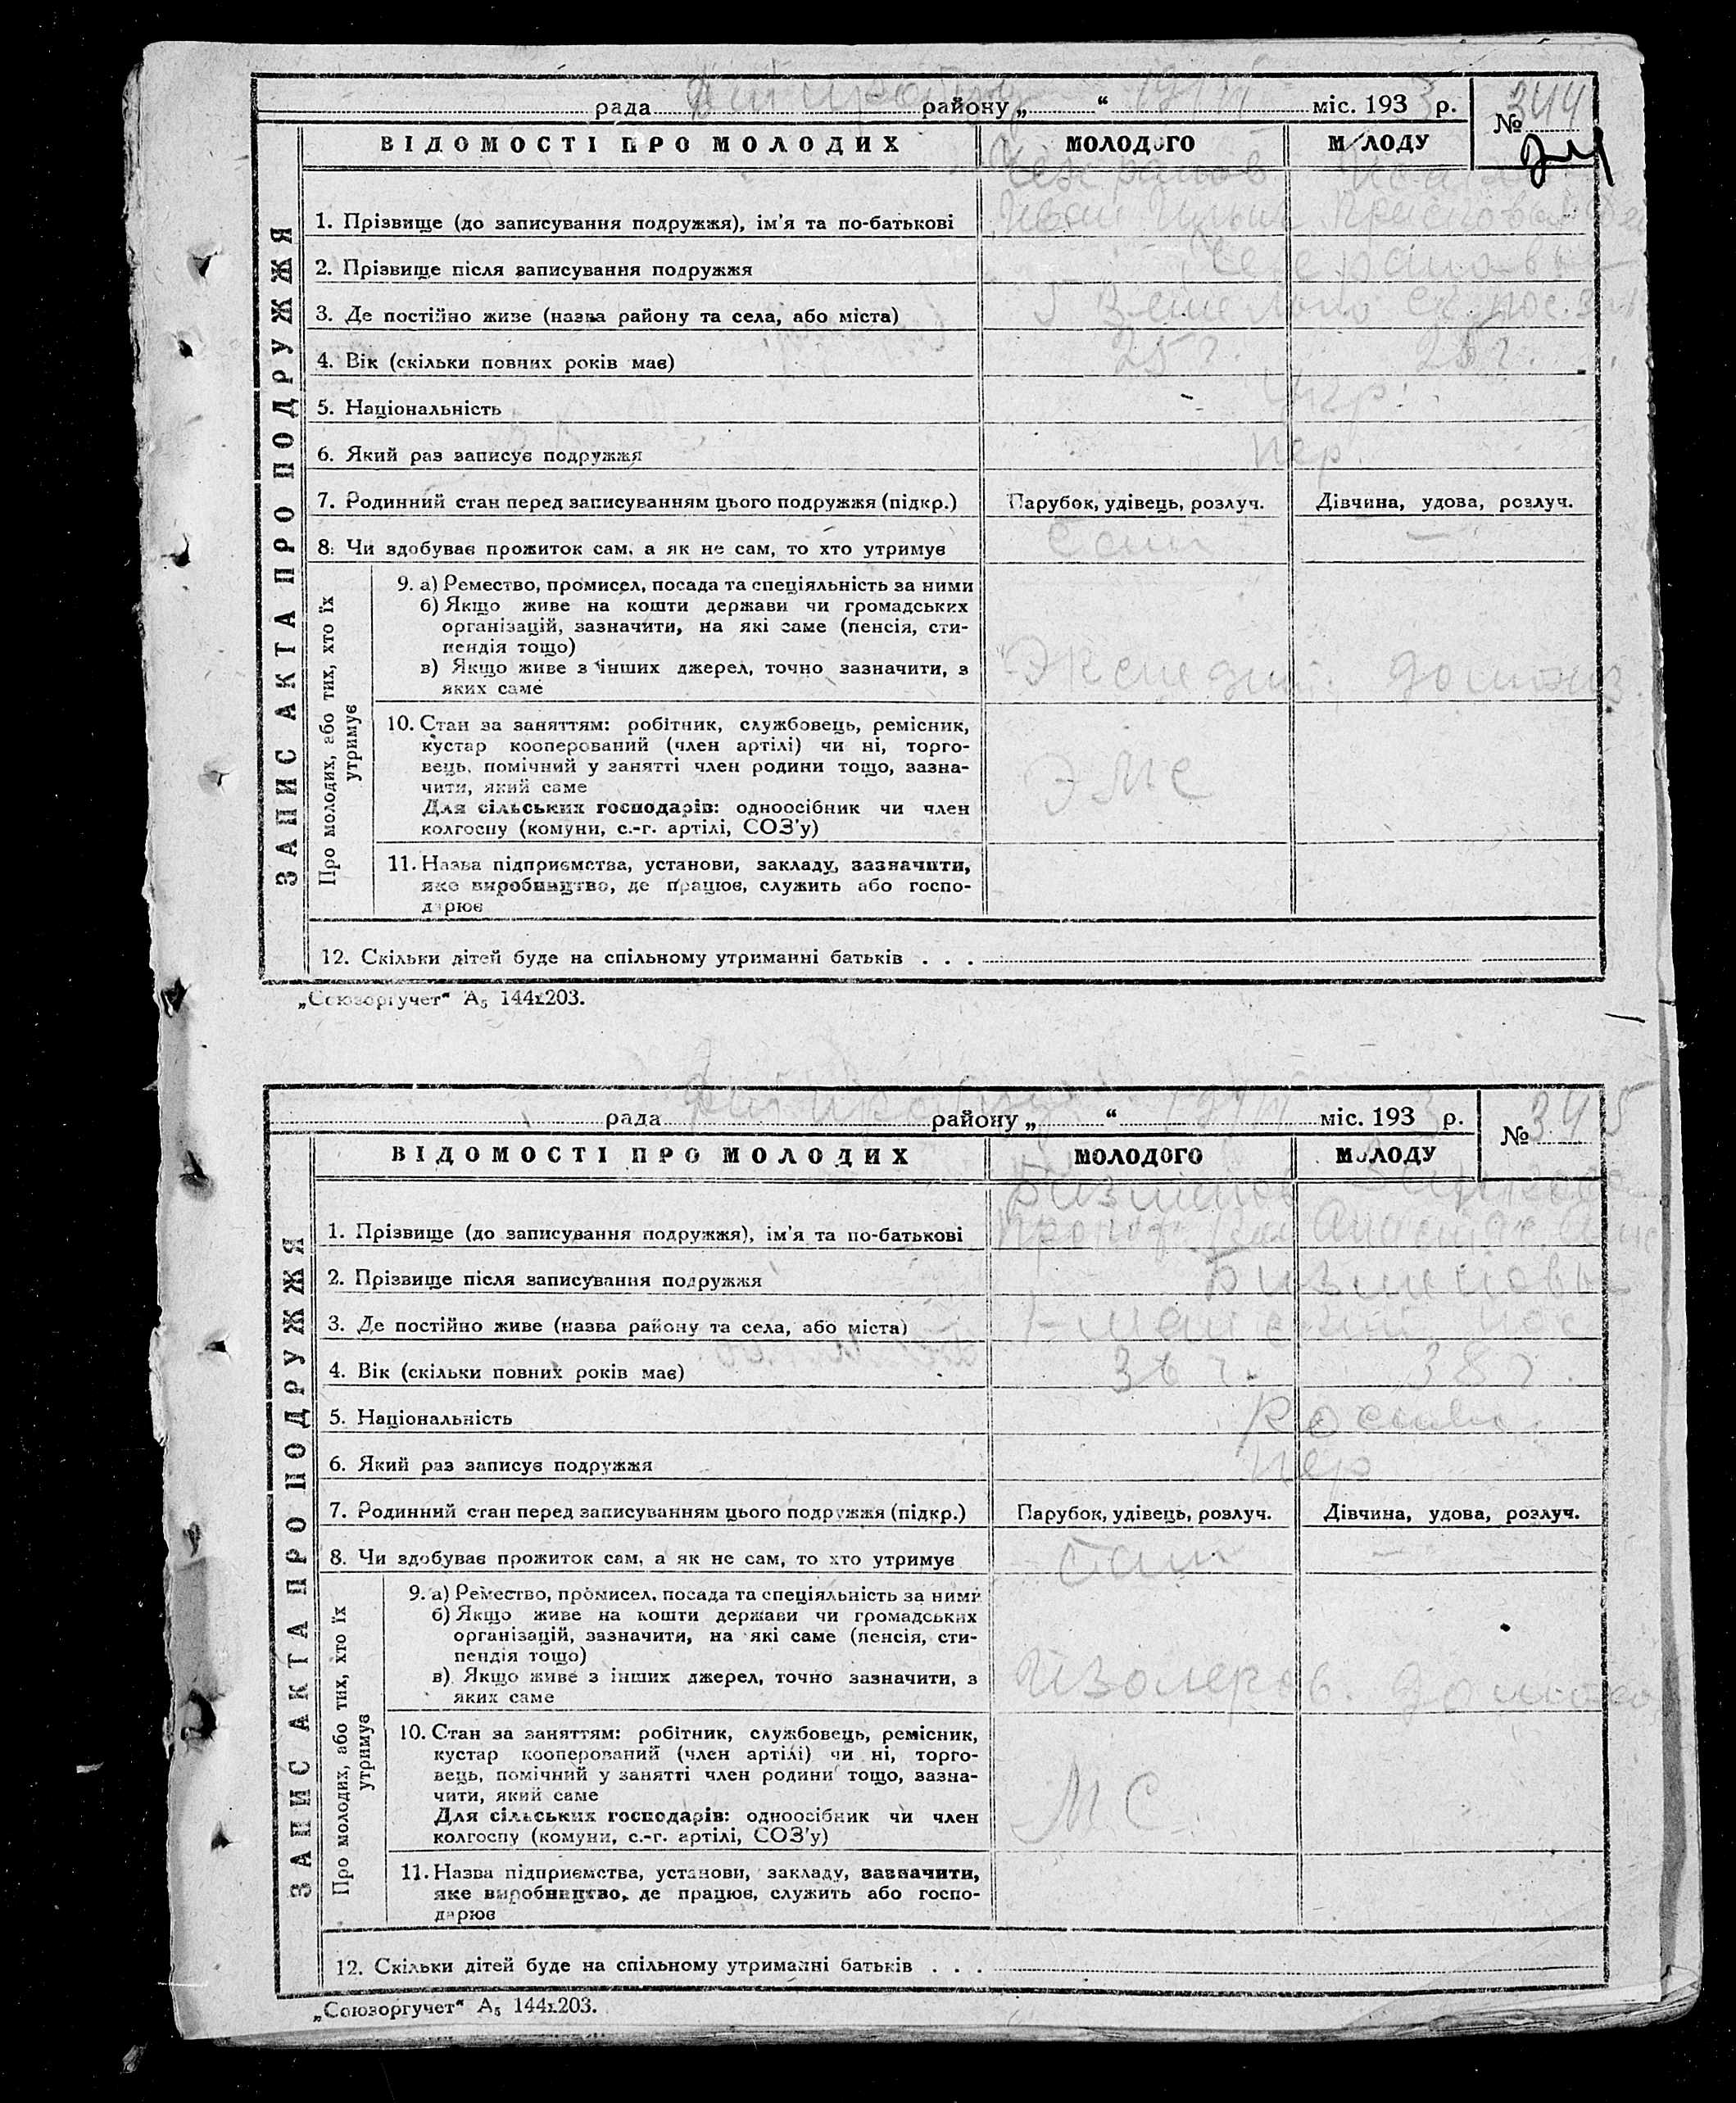 рада району „ “ 19/VI міс. 1933 р.
№ 344
ВІДОМОСТІ ПРО МОЛОДИХ МОЛОДОГО МОЛОДУ
ЗАПИС АКТА ПРО ПОДРУЖЖЯ
1. Прізвище (до записування подружжя), ім'я та по-батькові Иван
2. Прізвище після записування подружжя
3. Де постійно живе (назва району та села, або міста)
4. Вік (скільки повних років має) 25 г. 25 г.
5. Національність Укр.
6. Який раз записує подружжя пер.
7. Родинний стан перед записуванням цього подружжя (підкр.) Парубок, удівець, розлуч. Дівчина, удова, розлуч.
8. Чи здобуває прожиток сам, а як не сам, то хто утримує Сам —
Про молодих, або тих, хто їх утримує
9. а) Ремество, промисел, посада та спеціяльність за ними
б) Якщо живе на кошти держави чи громадських
організацій, зазначити, на які саме (пенсія, сти-
пендія тощо)
в) Якщо живе з інших джерел, точно зазначити, з
яких саме Экспедит. домохоз.
10. Стан за заняттям: робітник, службовець, ремісник,
кустар кооперований (член артілі) чи ні, торго-
вець, помічний у занятті член родини тощо, зазна-
чити, який саме
Для сільських господарів: одноосібник чи член
колгоспу (комуни, с.-г. артілі, СОЗ'у)
ЭМС
11. Назва підприємства, установи, закладу, зазначити,
яке виробництво, де працює, служить або госпо-
дарює
12. Скільки дітей буде на спільному утриманні батьків . . .
„Союзоргучет“ А₅ 144х203.
рада району „ “ 19/VI міс. 1933 р.
№ 345
ВІДОМОСТІ ПРО МОЛОДИХ МОЛОДОГО МОЛОДУ
ЗАПИС АКТА ПРО ПОДРУЖЖЯ
1. Прізвище (до записування подружжя), ім'я та по-батькові
2. Прізвище після записування подружжя
3. Де постійно живе (назва району та села, або міста)
4. Вік (скільки повних років має) 36 г. 38 г.
5. Національність
6. Який раз записує подружжя пер
7. Родинний стан перед записуванням цього подружжя (підкр.) Парубок, удівець, розлуч. Дівчина, удова, розлуч.
8. Чи здобуває прожиток сам, а як не сам, то хто утримує Сам —
Про молодих, або тих, хто їх утримує
9. а) Ремество, промисел, посада та спеціяльність за ними
б) Якщо живе на кошти держави чи громадських
організацій, зазначити, на які саме (пенсія, сти-
пендія тощо)
в) Якщо живе з інших джерел, точно зазначити, з
яких саме Изолеров.
10. Стан за заняттям: робітник, службовець, ремісник,
кустар кооперований (член артілі) чи ні, торго-
вець, помічний у занятті член родини тощо, зазна-
чити, який саме
Для сільських господарів: одноосібник чи член
колгоспу (комуни, с.-г. артілі, СОЗ'у)
МС
11. Назва підприємства, установи, закладу, зазначити,
яке виробництво, де працює, служить або госпо-
дарює
12. Скільки дітей буде на спільному утриманні батьків . . .
„Союзоргучет“ А₅ 144х203.